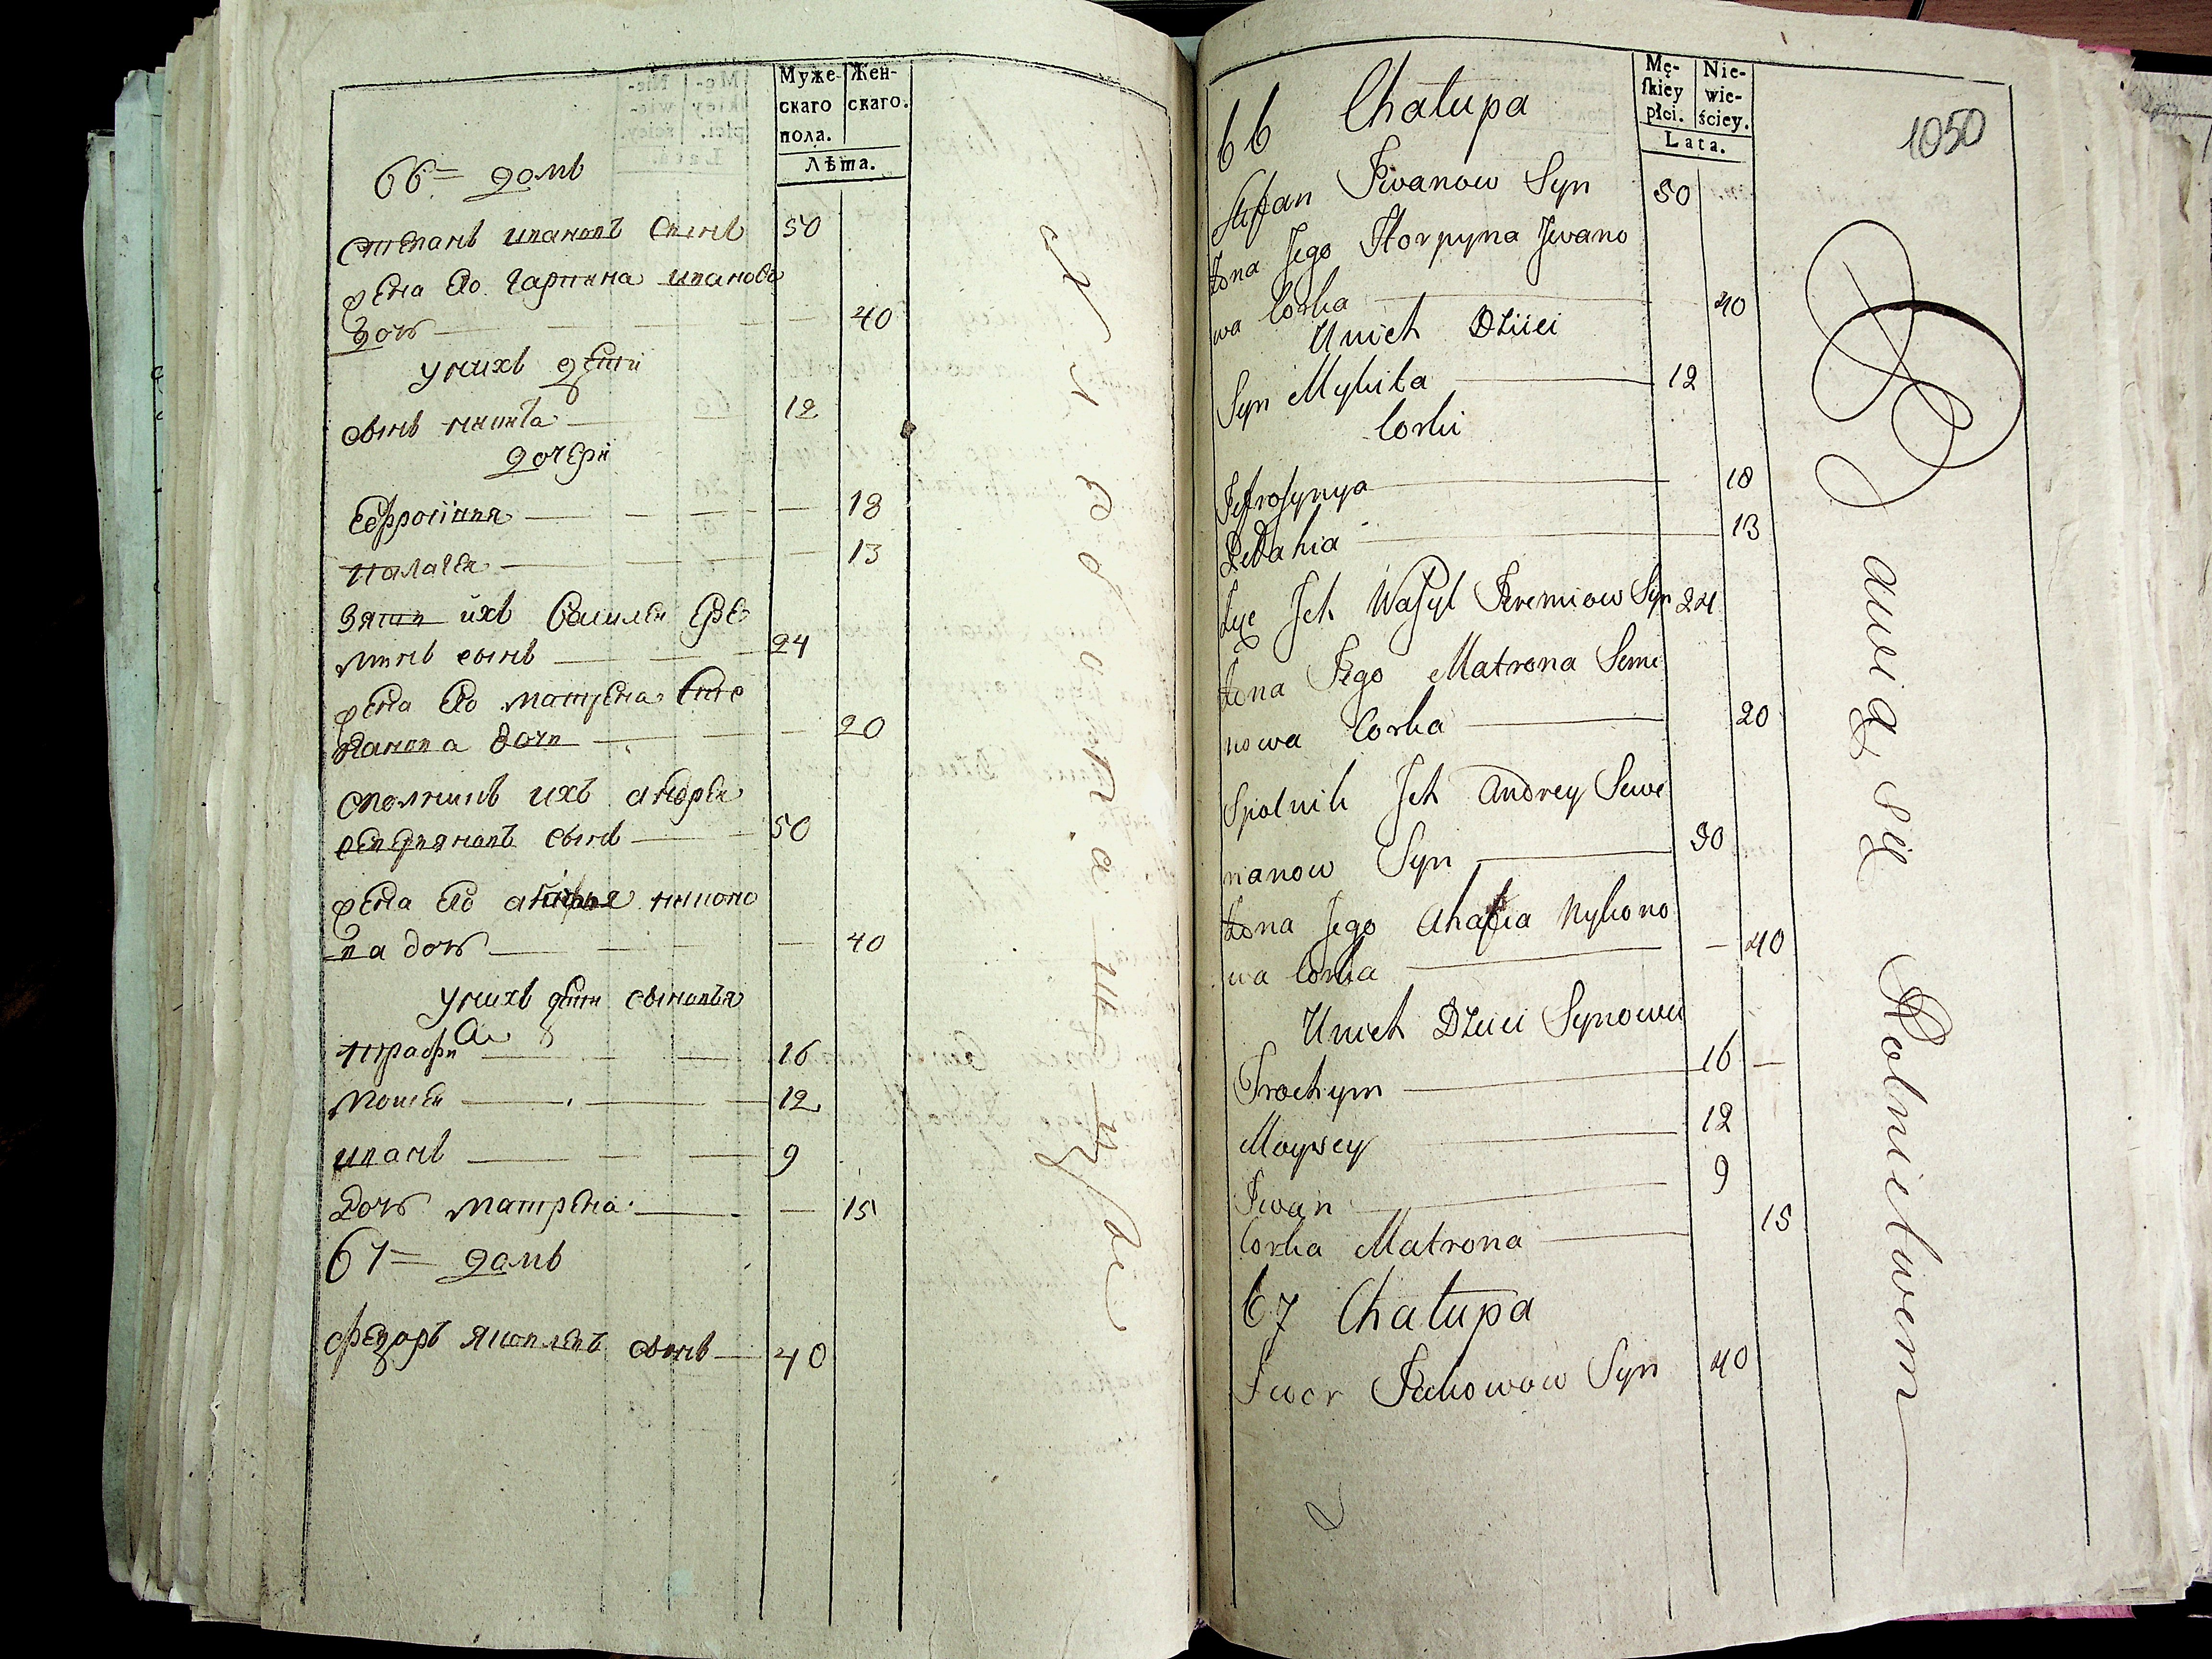 Муже-
скаго
пола.
Жен-
скаго.
Лѣта.
66 = домъ
Степанъ ивановъ сынъ 50
жена его гарпина иванова
дочь — 40
у нихъ дети
сынъ никита — 12
дочери
Ефросиния — 18
палагея — 13
Зять ихъ василеи ере
минъ сынъ — 24
жена его матрена сте
панова дочь — 20
сполникъ ихъ андреи
северияновъ сынъ — 50
жена его никоно
ва дочь — 40
у нихъ дети сыновья
16
моисеи — 12
иванъ — 9
дочь матрена — 15
67 = домъ
федоръ яковлевъ сынъ — 40
Mę-
ſkiey
płci.
Nie-
wie-
ściey.
Lata.
1050
66 Chałupa
Stefan Iwanow Syn 50
Żona Jego Horpyna Jwano
wa Corka — 40
Unich Dzieci
Syn Mykita — 12
Corki
Jefrosynya — 18
Pelahia — 13
Zięć Jch Wasyl Jeremiow Syn 24
Żona Jego Matrona Seme
nowa Corka — 20
Spolnik Jch Andrey Sewe
rianow Syn — 50
Żona Jego Ahafia Nykono
wa Corka — 40
Unich Dzieci Synowie
Trochym — 16 —
Moysey — 12
Iwan — 9
Corka Matrona — 15
67 Chałupa
Fwor Jakowow Syn 40
Bawią się Rolnictwem